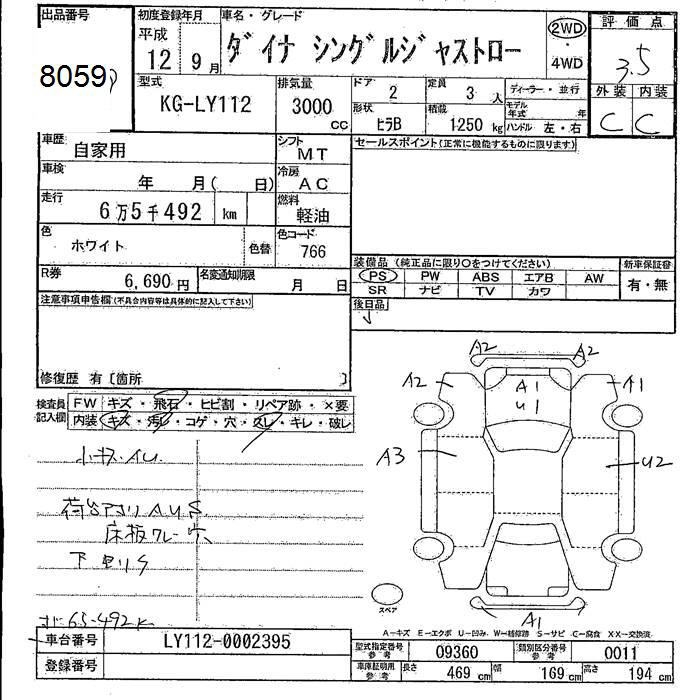 出品番号 初度登録年月 車名・グレード 評価点
8059 平成 12 9月 ダイナ シングルジャストロー 2WD・4WD 3.5
型式 排気量 ドア 定員 ディーラー・並行 外装 内装
KG-LY112 3000cc 2 3人 モデル年式 年 C C
形状 積載 ハンドル 左・右
ヒラB 1250kg
車歴 自家用 シフト MT セールスポイント(正常に機能するものに限ります)
車検 年 月( 日) 冷房 AC
走行 6万5千492 km 燃料 軽油
色 ホワイト 色替 色コード 766
装備品(純正品に限り○をつけてください) 新車保証書
PS PW ABS エアB AW 有・無
SR ナビ TV カワ
R券 6,690円 名変通知期限 月 日
後日品
注意事項申告欄(不具合内容等は具体的に記入して下さい)
修復歴 有〔箇所 〕
検査員記入欄 FW キズ・飛石・ヒビ割・リペア跡・×要
内装 キズ・汚レ・コゲ・穴・スレ・キレ・破レ
A2 A2
A2 A1 U1 A1
A3 U2
小キズAU
AUS
床板ワレ 穴
下回りS
65-492K
スペア
A1
A-キズ E-エクボ U-凹み W-補修跡 S-サビ C-腐食 XX-交換済
車台番号 LY112-0002395
登録番号
型式指定番号参考 09360 類別区分番号参考 0011
車庫証明用参考 長さ 469cm 幅 169cm 高さ 194cm